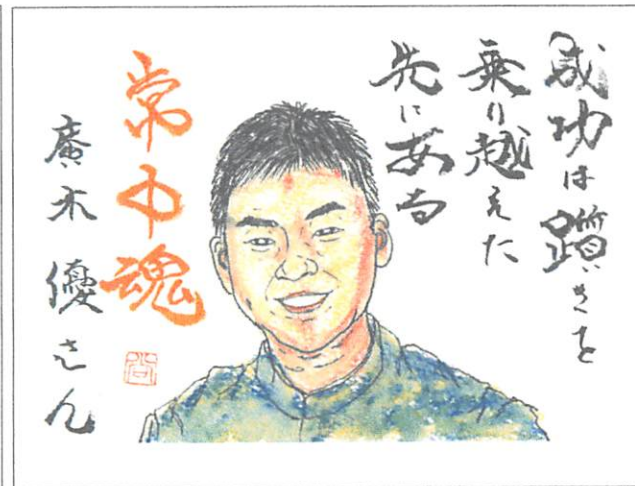 成功は躓きを
乗り越えた
先に在る
常中魂
廣木優さん
尚